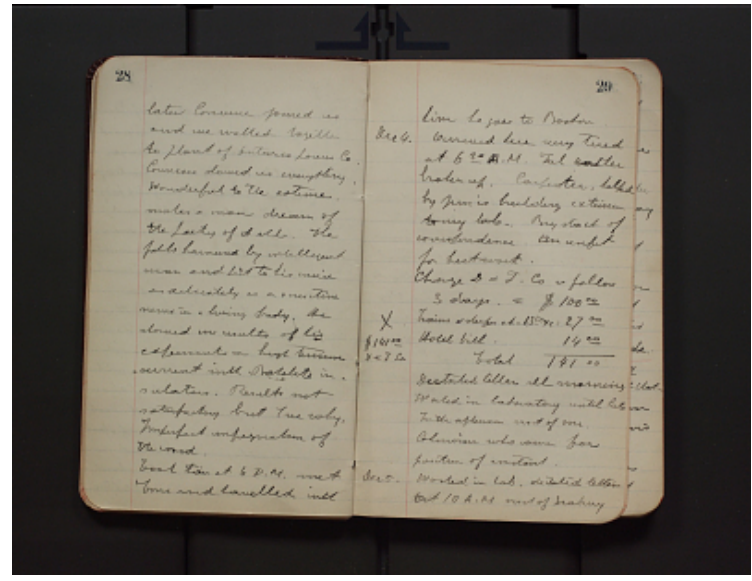 28
later Converse joined us
and we walked together
to plant of Ontario Power Co.
Converse showed us everything.
Wonderful to the extreme.
makes a man dream of
the poetry of it all. The
falls harnessed by intelligent
man and led to his
as delicately as a sensitive
nerve in a living body. He
showed me results of his
experiments on high tension
current with Bakelite in-
sulators. Results not
satisfactory but I see why.
Imperfect impregnation of
the wood.
Took train at 6 P.M. met
and travelled with
29
him to Boston
Dec 4.
arrived here very tired
at 6 A.M. Feel rather
broken up. Carpenter, helped
by Jim is building extension
to my lab. Big stack of
correspondence. Am unfit
for hard work.
Charge D & F. Co as follows
3 days. = $100.00
X
Trains & sleeper etc. 27.00
$141.00
Hotel bill 14.00
D & F Co
Total 141.00
Dictated letters all morning
Worked in laboratory until late
In the afternoon visit of
who came for
position of assistant.
Dec 5.
Worked in lab, dictated letters
At 10 A.M visit of